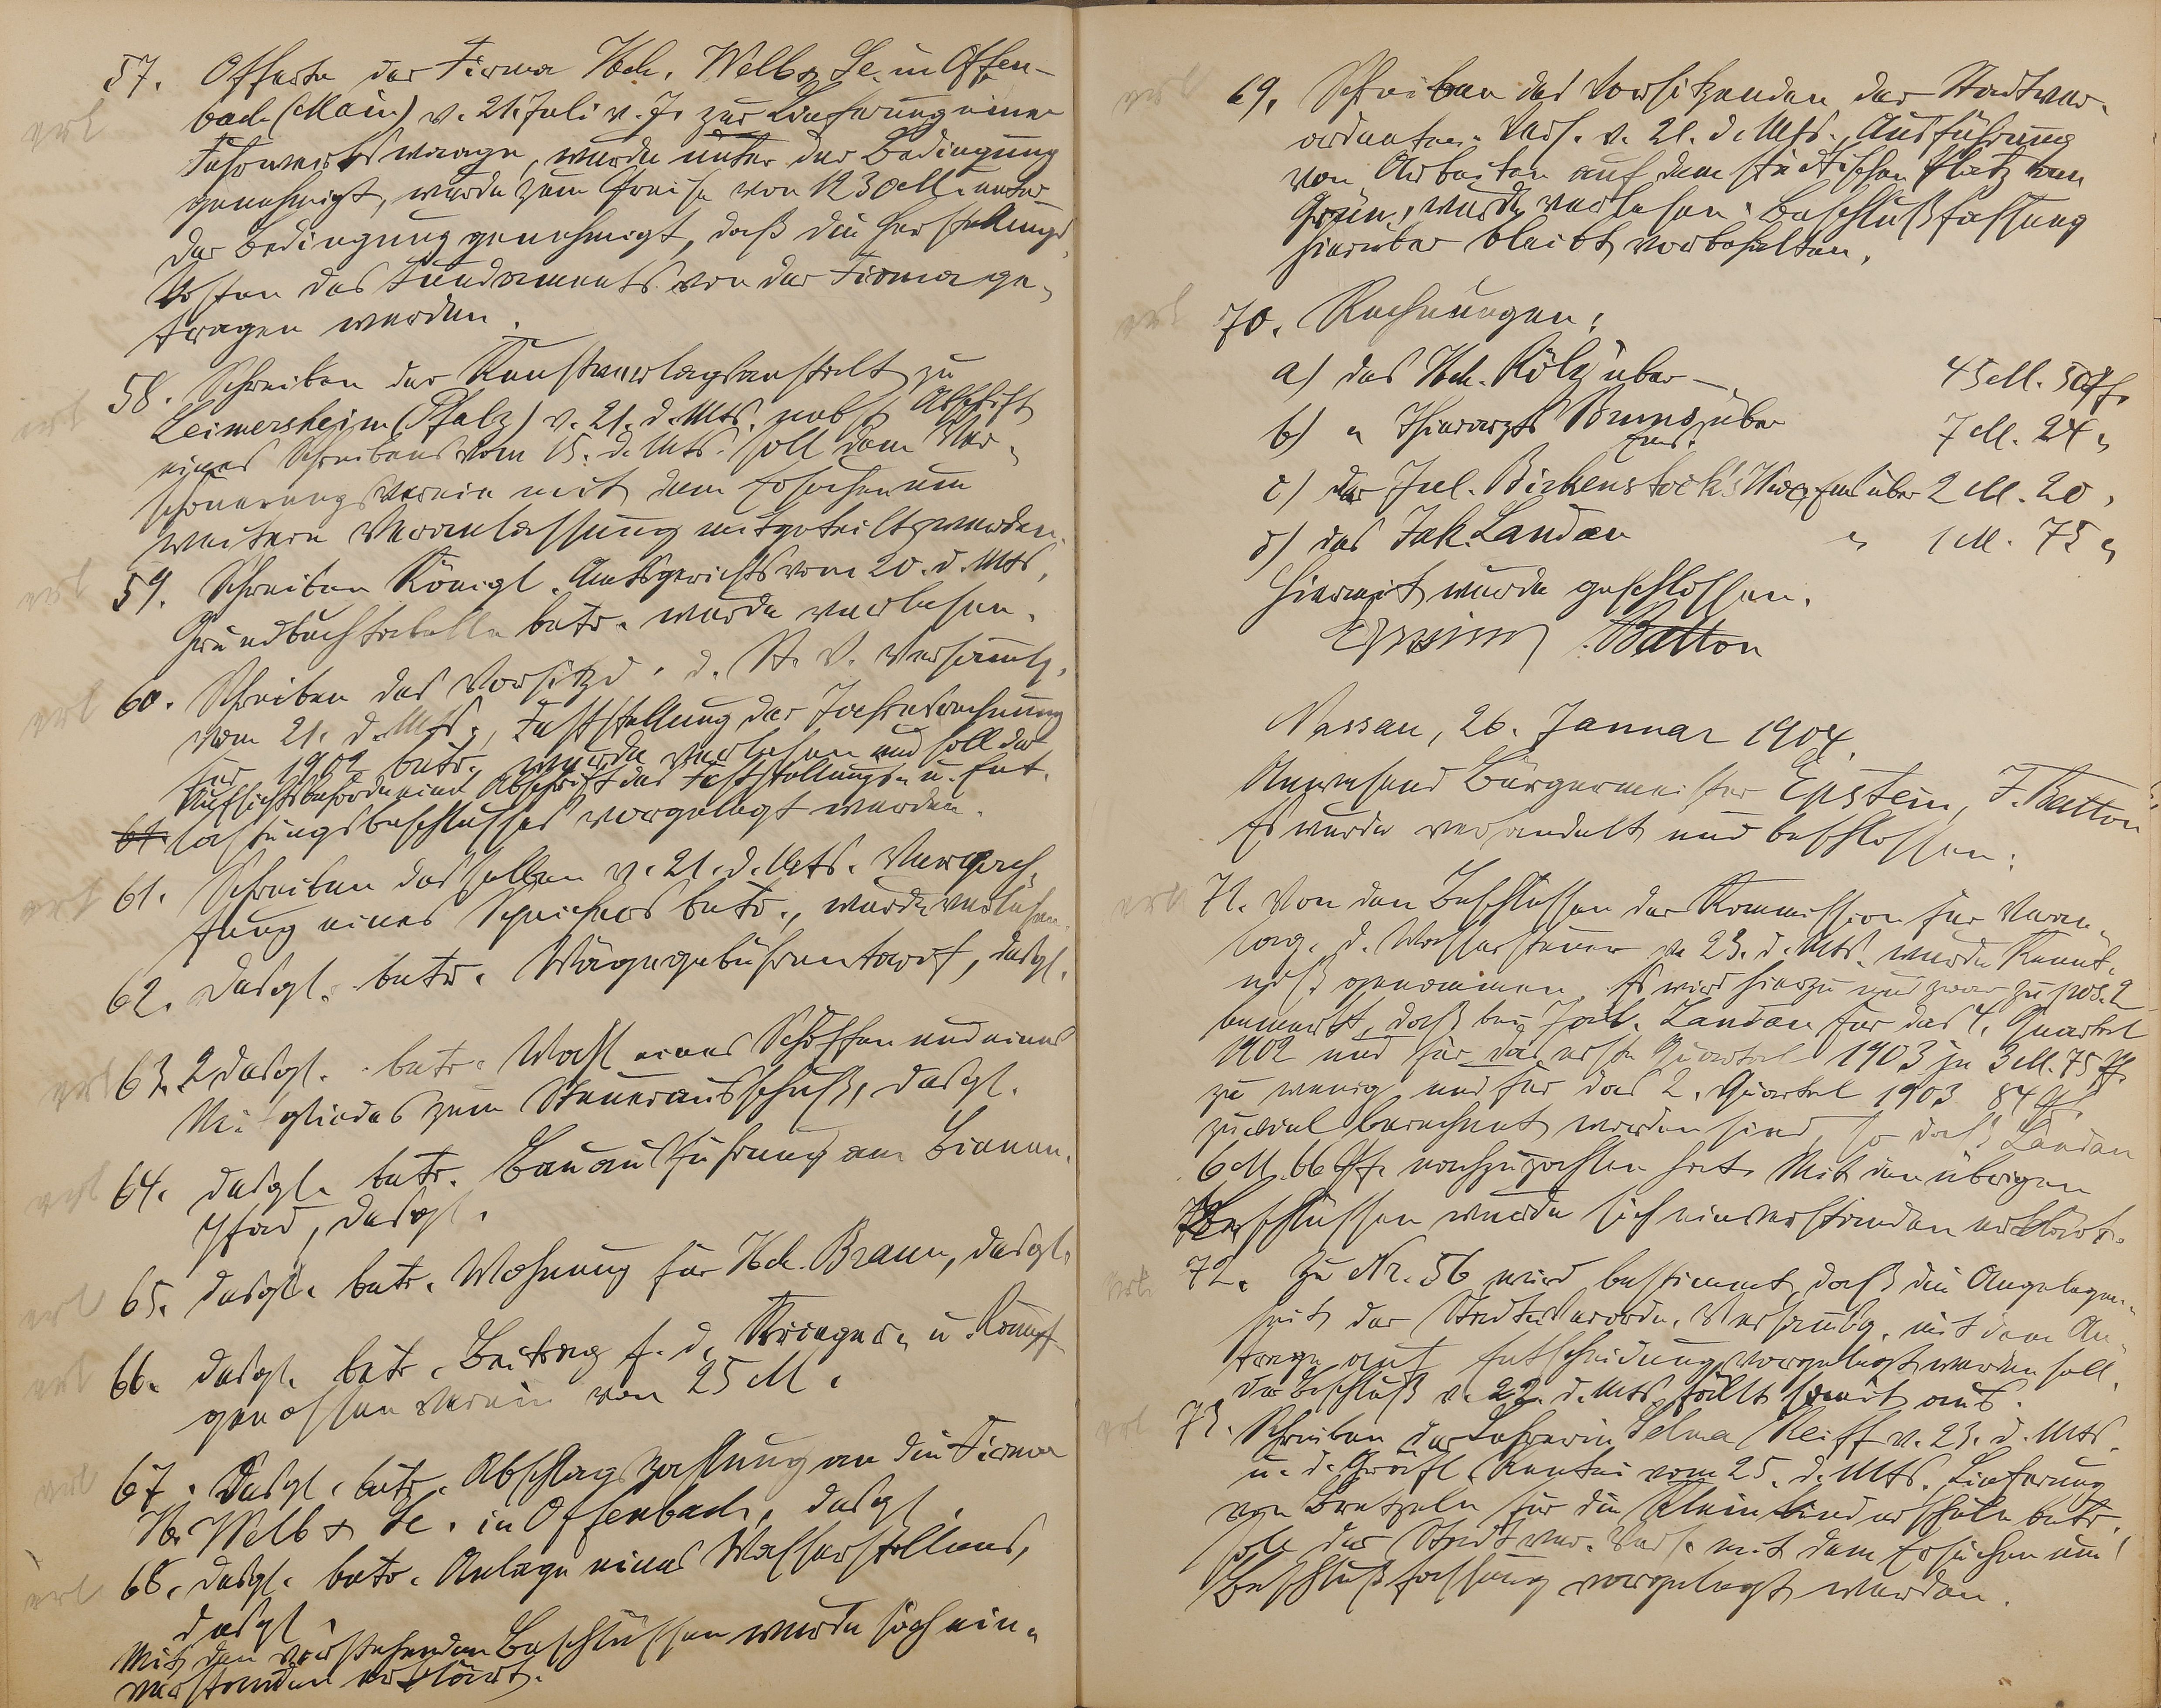 57. Offerte der Firma Hch. Welb & Se. in Offen-
erl bach (Main) v. 21. Juli v. Js. zur Lieferung einer
Fuhrwerkswaage, wurde unter der Bedingung
genehmigt, wurde zum Preise von 1230 M. unter
der Bedingung genehmigt, daß die Herstellungs-
kosten des Fundaments von der Firma ge-
tragen werden.
erl 58. Schreiben der Kunstverlagsanstalt zu
Leimersheim (Pfalz) v. 21. d. Mts. nebst Abschrift
eines Schreibens vom 15. d. Mts. soll dem Ver-
schönerungsverein mit dem Ersuchen um
weitere Veranlassung mitgeteilt werden.
erl 59. Schreiben Königl. Amtsgerichts vom 20. d. Mts,
Grundbuchtabelle betr. wurde verlesen.
erl 60. Schreiben des Vorsitzd. d. St. V. Versammlg.
vom 21. d. Mts., Feststellung der Jahresrechnung
für 1902 betr. wurde verlesen und soll der
Aufsichtsbehörde eine Abschrift des Feststellungs- u. Ent-
61 lastungsbeschlusses vorgelegt werden.
erl 61. Schreiben desselben v. 21. d. Mts. Verpach-
tung eines Speichers betr., wurde verlesen.
62. Desgl. betr. Wägegebührentarif, desgl.
erl 63. 2 desgl. betr. Wahl eines Schöffen und eines
Mitgliedes zum Steuerausschuß, desgl.
erl 64. desgl. betr. Bauausführung am Bienen-
pfad, desgl.
erl 65. desgl. betr. Wohnung für Hch. Braun, desgl.
erl 66. desgl. betr. Beitrag f. d. Krieger- u. Kampf-
genossenverein von 25 M.
erl 67. Desgl. betr. Abschlagszahlung an die Firma
H. Welb & Se. in Offenbach, desgl.
erl 68. desgl. betr. Anlage eines Wasserstollens,
desgl.
Mit den vorstehenden Beschlüssen wurde sich ein-
verstanden erklärt.
erl 69. Schreiben des Vorsitzenden der Stadtver-
ordneten-Vers. v. 21. d. Mts., Ausführung
von Arbeiten auf dem städtischen Platz am
Grün, wurde verlesen. Beschlußfassung
hierüber bleibt vorbehalten.
erl 70. Rechnungen:
a) des Hch. Kölz über 45 M. 50 Pf.
b) " Thierarzts Bruns über 7 M. 24 "
c) der Jul. Birkenstock's Wwe, Ems über 2 M. 20 "
d) des Jak. Landau " 1 M. 75 "
Hiermit wurde geschlossen.
Epstein Batton
Nassau, 26. Januar 1904.
Anwesend Bürgermeister Epstein, F. Batton
Es wurde verhandelt und beschlossen:
erl 71. Von den Beschlüssen der Kommission für Veran-
lag. d. Wassersteuer v. 23. d. Mts. wurde Kennt-
niß genommen. Es wird hierzu und zwar zu pos. 2
bemerkt, daß bei Landau für das 4. Quartal
1902 und für das erste Quartal 1903 je 3 M. 75 Pf.
zu wenig und für das 2. Quartal 1903 84 Pf.
zuviel berechnet worden sind, so daß Landau
6 M. 66 Pf. nachzuzahlen hat. Mit den übrigen
Beschlüssen wurde sich einverstanden erklärt.
erl. 72. Zu Nr. 56 wird bestimmt, daß die Angelegen-
heit der Stadtverordn. Versammlg. mit dem An-
trage auf Entscheidung vorgelegt werden soll.
Der Beschluß v. 22. d. Mts. fällt somit aus.
erl 73. Schreiben der Lehrerin Selma Reiff v. 23. d. Mts.
u. d. Gräfl. Rentei vom 25. d. Mts. Lieferung
von Bretzeln für die Kleinkinderschule betr.
soll der Stadtver. Vers. mit dem Ersuchen um
Beschlußfassung vorgelegt werden.